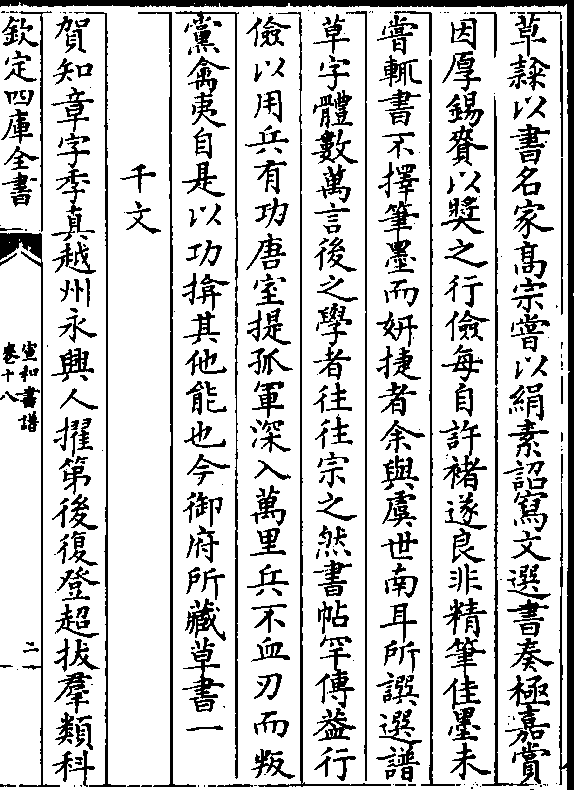 草隸以書名家髙宗嘗以絹素詔寫文選書奏極嘉賞
因厚錫賚以奬之行儉每自許褚遂良非精筆佳墨未
嘗輒書不擇筆墨而妍捷者余與虞世南耳所譔選譜
草字體數萬言後之學者往往宗之然書帖罕傳葢行
儉以用兵有功唐室提孤軍深入萬里兵不血刃而叛
黨禽夷自是以功揜其他能也今御府所藏草書一
千文
賀知章字季真越州永興人擢第後復登超拔羣類科
欽定四庫全書
宣和書譜
卷十八
二